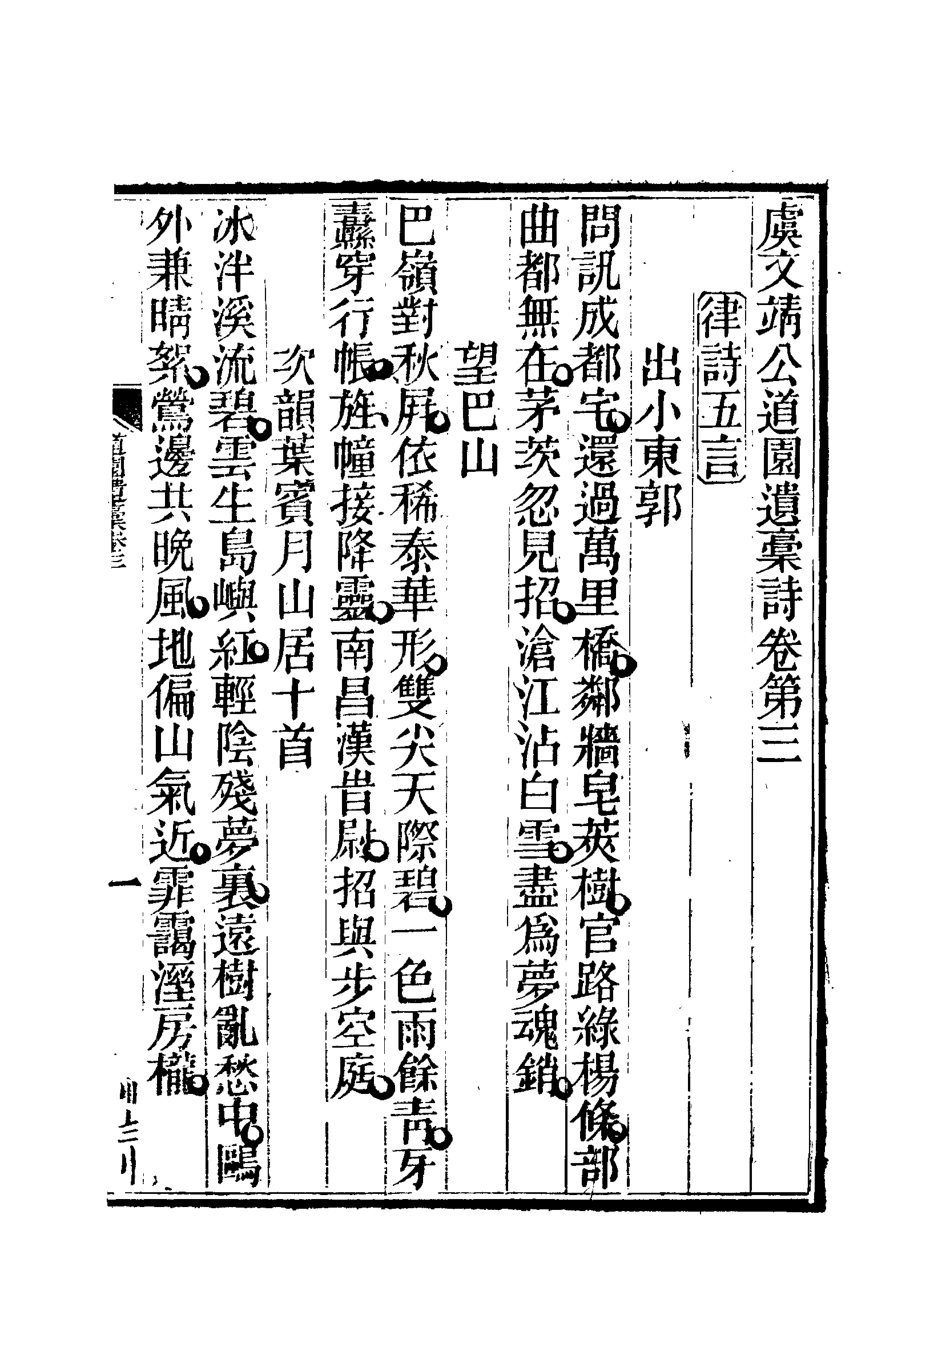 虞文靖公道園遺稾詩卷第三
律詩五言
出小東郭
問訊成都宅。還過萬里橋。鄰牆皂莢樹。官路綠楊條。部
曲都無在。茅茨忽見招。滄江沾白雪。盡爲夢魂銷。
望巴山
巴嶺對秋屛。依稀泰華形。雙尖天際碧。一色雨餘靑。牙
纛穿行帳。旌幢接降靈。南昌漢昔尉。招與步空庭。
次韻葉賓月山居十首
冰泮溪流碧。雲生島嶼紅。輕陰殘夢裏。遠樹亂愁中。鷗
外兼晴絮。鶯邊共晚風。地偏山氣近。霏靄溼房櫳。
道園遺稾卷三
一